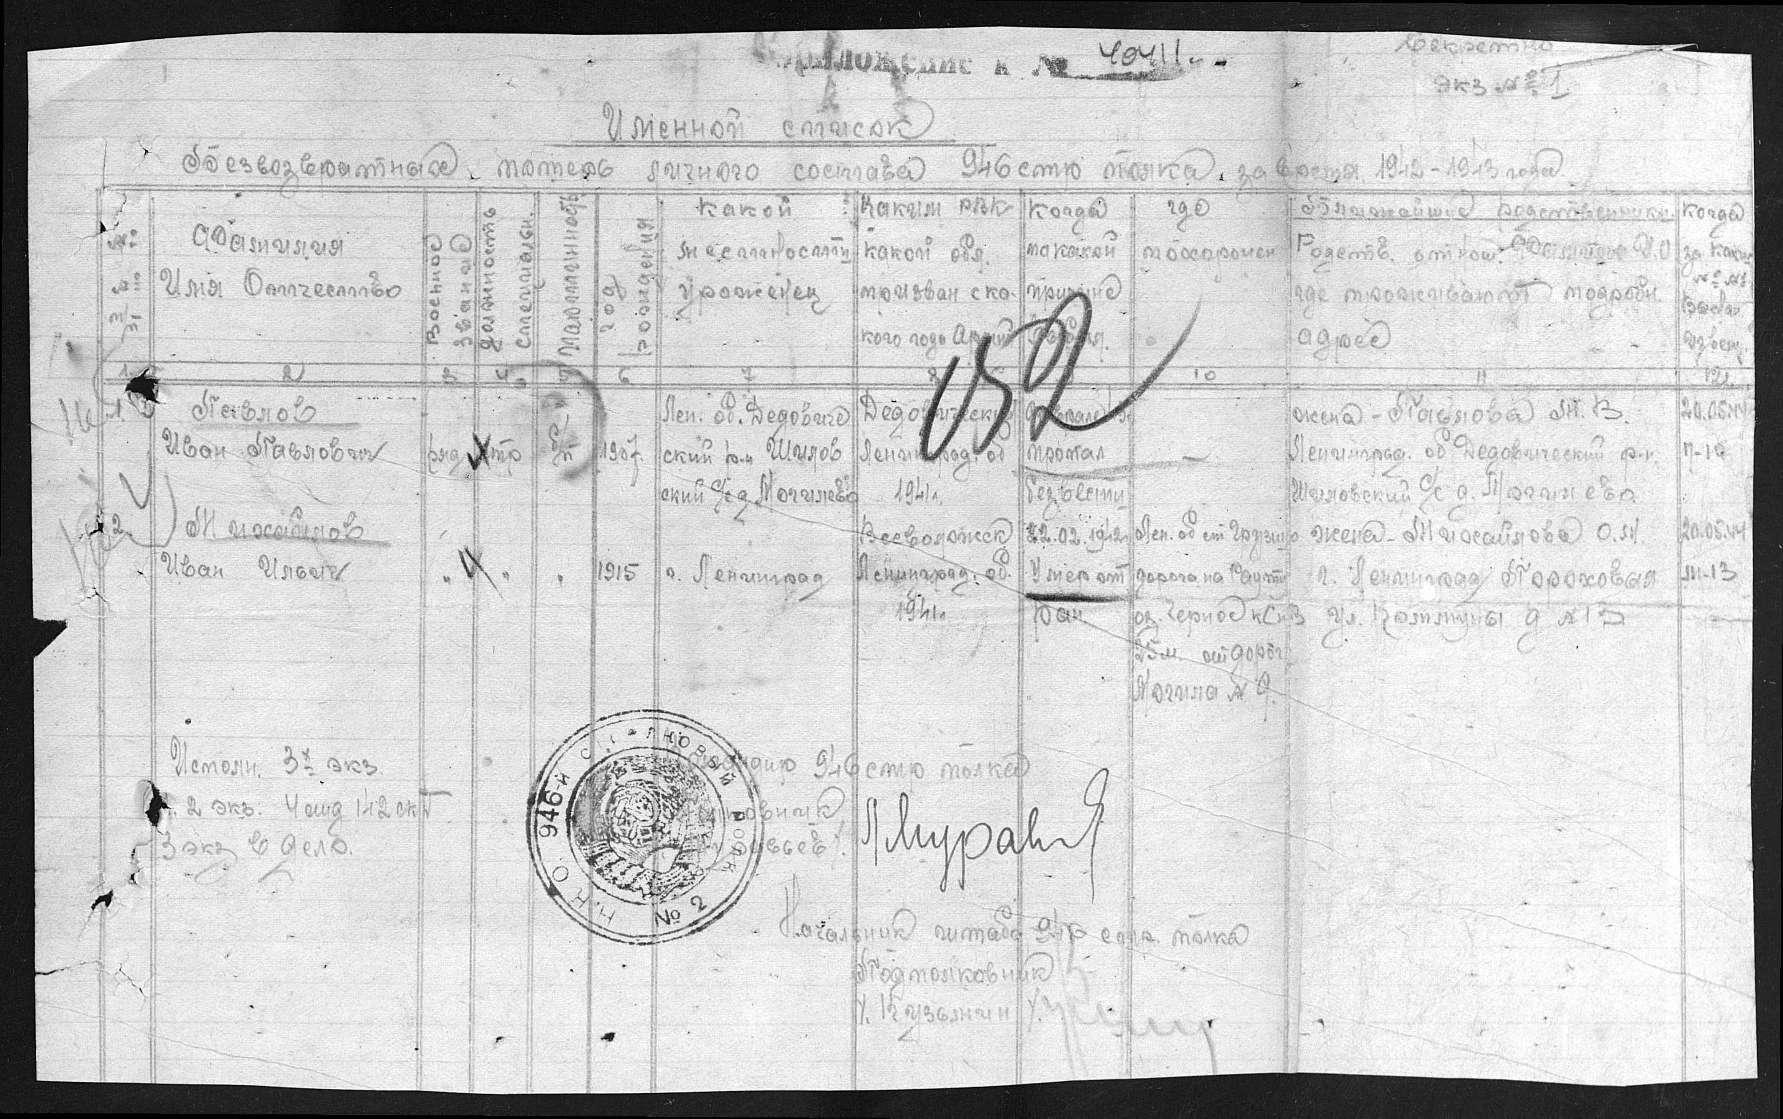 Приложение к № 40411
Секретно
экз № 1
Именной список
безвозвратных потерь личного состава 946 стр полка за время 1942-1943 года
Фамилия
Имя Отчество
Военное звание
должность специальн.
Партийность
год рождения
какой
местности
уроженец
Каким РВК
какой обл.
призван с ка-
кого года Армии
Когда
по какой
причине
где
похоронен
Ближайшие родственники
Родств. отнош. Фамилия И.О
где проживают подробн.
адрес
Когда
за каким
№ №
1 2 3 4 5 6 7 8 10 11 12
152
1 Павлов
Иван Павлович
ряд стр б/п 1907
Лен. об. Дедовиче
ский р-н Шилов
ский с/с д. Могилево
Дедовический
Ленинград. об
1941г.
пропал
безвести
—
жена - Павлова М. В.
Ленинград. об Дедовический р-н.
Шиловский с/с д. Могилево
20.05.44
п-19
2 Михайлов
Иван Ильич
" " " 1915 г. Ленинград
Всеволожск
Ленинград. об.
1941г.
22.02.1942
Умер от
ран
Лен. об ст Грузино
дорога на
оз. Черное к С и В
25м. от дорог.
Могила № 9.
жена - Михайлова О.М.
г. Ленинград Пороховая
ул. Коммуны д № 13
20.05.44
м-13
Исполн. 3х экз.
2 экз. 4 отд 142 скд
3 экз в дело.
946 стр полка
Н.К.О. 946-й Стрелковый полк № 2
Муравь
Начальник штаба 946 стр. полка
Подполковник
/. Кузьмин /.